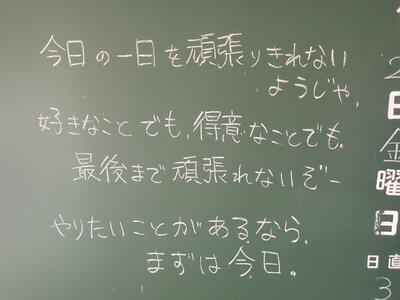 今日の一日を頑張りきれない
ようじゃ、
好きなことでも、得意なことでも、
最後まで頑張れないぞー
やりたいことがあるなら、
まずは今日。
2
日
金
曜
日
日直
3